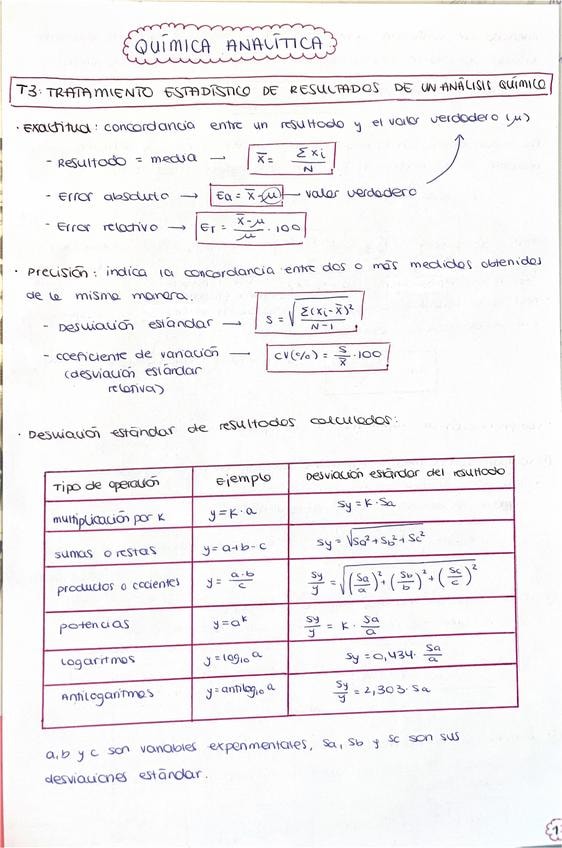 QUÍMICA ANALÍTICA
T3: TRATAMIENTO ESTADÍSTICO DE RESULTADOS DE UN ANÁLISIS QUÍMICO
· Exactitud: concordancia entre un resultado y el valor verdadero (μ)
- Resultado = media → x̄ = Σxi / N
- Error absoluto → Ea = x̄ - μ → valor verdadero
- Error relativo → Er = (x̄ - μ) / μ · 100
· Precisión: indica la concordancia entre dos o más medidas obtenidas
de la misma manera.
- Desviación estándar → s = √(Σ(xi - x̄)² / (N - 1))
- coeficiente de variación — CV(%) = s / x̄ · 100
(desviación estándar
relativa)
· Desviación estándar de resultados calculados:
Tipo de operación Ejemplo Desviación estándar del resultado
multiplicación por K y = K · a Sy = K · Sa
sumas o restas y = a + b - c Sy = √(Sa² + Sb² + Sc²)
productos o cocientes y = a·b / c Sy/y = √((Sa/a)² + (Sb/b)² + (Sc/c)²)
potencias y = aᵏ Sy/y = K · Sa/a
logaritmos y = log₁₀ a Sy = 0,434 · Sa/a
Antilogaritmos y = antilog₁₀ a Sy/y = 2,303 · Sa
a, b y c son variables experimentales, Sa, Sb y Sc son sus
desviaciones estándar.